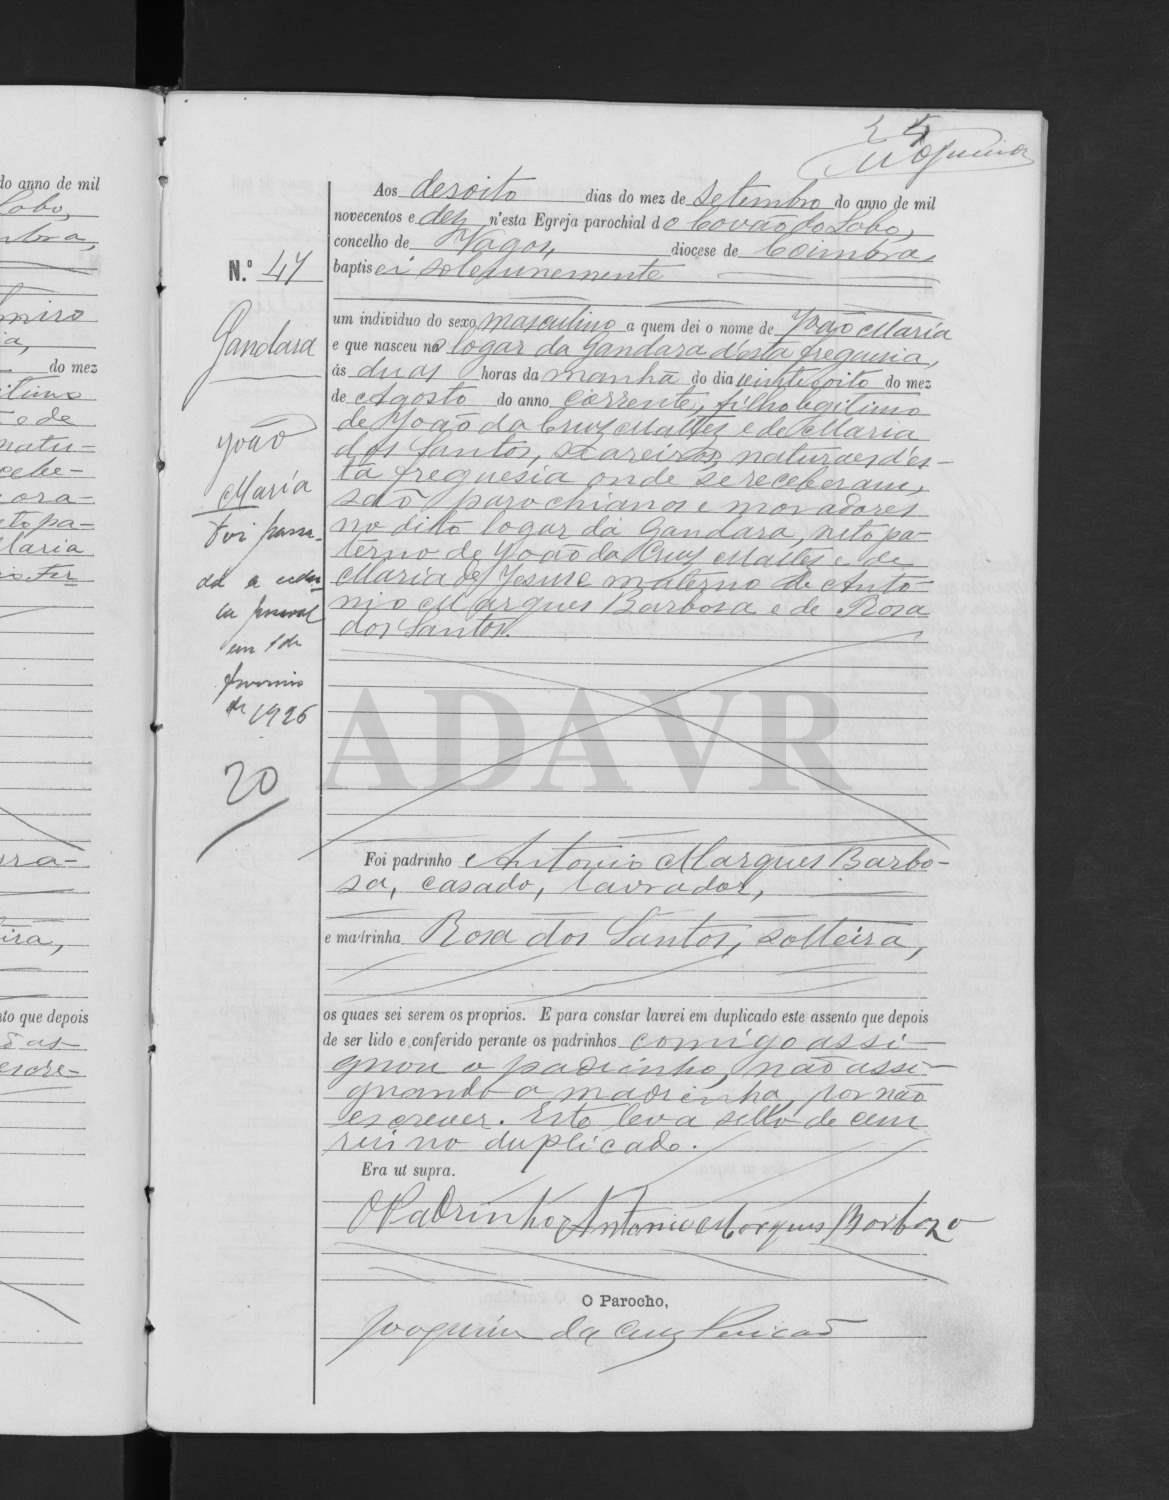 Nogueira
Aos desoito dias do mez de Setembro do anno de mil
novecentos e dez n'esta Egreja parochial do Covão do Lobo,
concelho de Vagos, diocese de Coimbra,
baptisei solemnemente
N.º 47
um individuo do sexo masculino a quem dei o nome de João Maria
e que nasceu no logar da Gandara d'esta freguesia,
ás duas horas da manhã do dia vinte oito do mez
de Agosto do anno corrente, filho legitimo
de João da Cruz Mattez e de Maria
dos Santos, naturaes d'es-
ta freguesia onde se receberam,
são parochianos e moradores
no dito logar da Gandara, neto pa-
terno de João da Cruz Mattez e de
Maria de Jesus e materno de Antó-
nio Marques Barbosa e de Rosa
dos Santos.
Gandara
João
Maria
Foi passa-
da a cedu-
la pessoal
em 1 de
de 1926
20
ADAVR
Foi padrinho Antonio Marques Barbo-
sa, casado, lavrador,
e madrinha Rosa dos Santos, solteira,
os quaes sei serem os proprios. E para constar lavrei em duplicado este assento que depois
de ser lido e conferido perante os padrinhos comigo assi-
gnou o padrinho, não assi-
gnando a madrinha, por não
escrever. Este leva sello de cem
reis no duplicado.
Era ut supra.
O Padrinho Antonio Marques Barboza
O Parocho,
Joaquim da Cruz
do anno de mil
Lobo,
do mez
natu-
cebe-
mora-
neto pa-
Maria
nto que depois
escre-